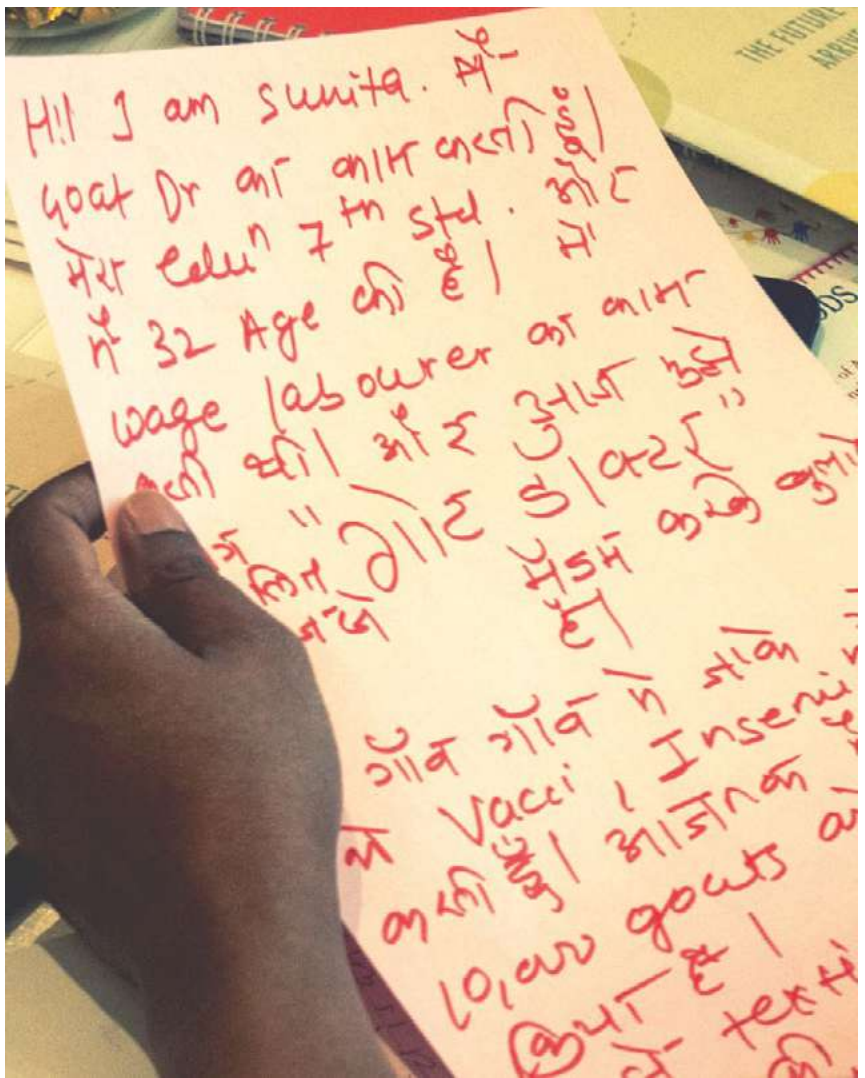 Hi! I am sunita. मैं
goat Dr का काम करती हूँ।
मेरा Edun 7th std. और
मैं 32 Age की हूँ। मैं
wage labourer का काम
करती थी। और आज मुझे
"गोट डाक्टर"
मैडम करके बुलाते
है।
गाँव गाँव में जाके
मैं Vacci, Insemi
करती हूँ। आजतक
10,000 goats
किया है।
THE FUTURE